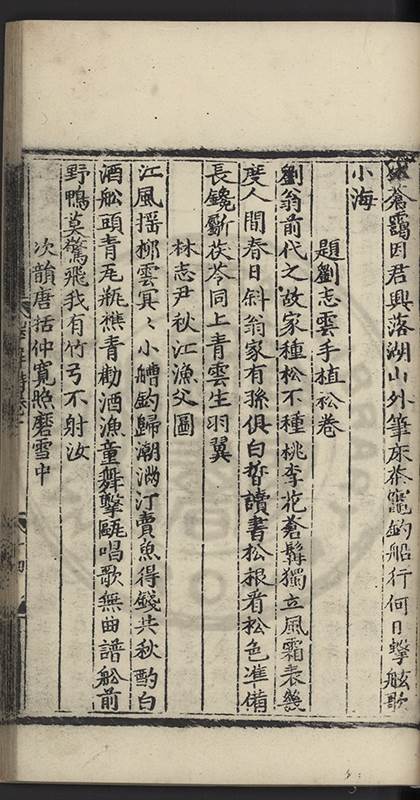 蒼靄因君興落湖山外筆床茶竈釣船行何日擊舷歌
小海
題劉志雲手植松卷
劉翁前代之故家種松不種桃李花蒼髯獨立風霜表幾
度人間春日斜翁家有孫俱白皙讀書松根看松色准備
長鑱斸茯苓同上青雲生羽翼
林志尹秋江漁父圖
江風搖柳雲冥〻小艚釣歸潮滿汀賣魚得錢共秋酌白
酒船頭青瓦瓶樵青勸酒漁童舞擊甌唱歌無曲譜船前
野鴨莫驚飛我有竹弓不射汝
次韻唐括仲寬照磨雪中